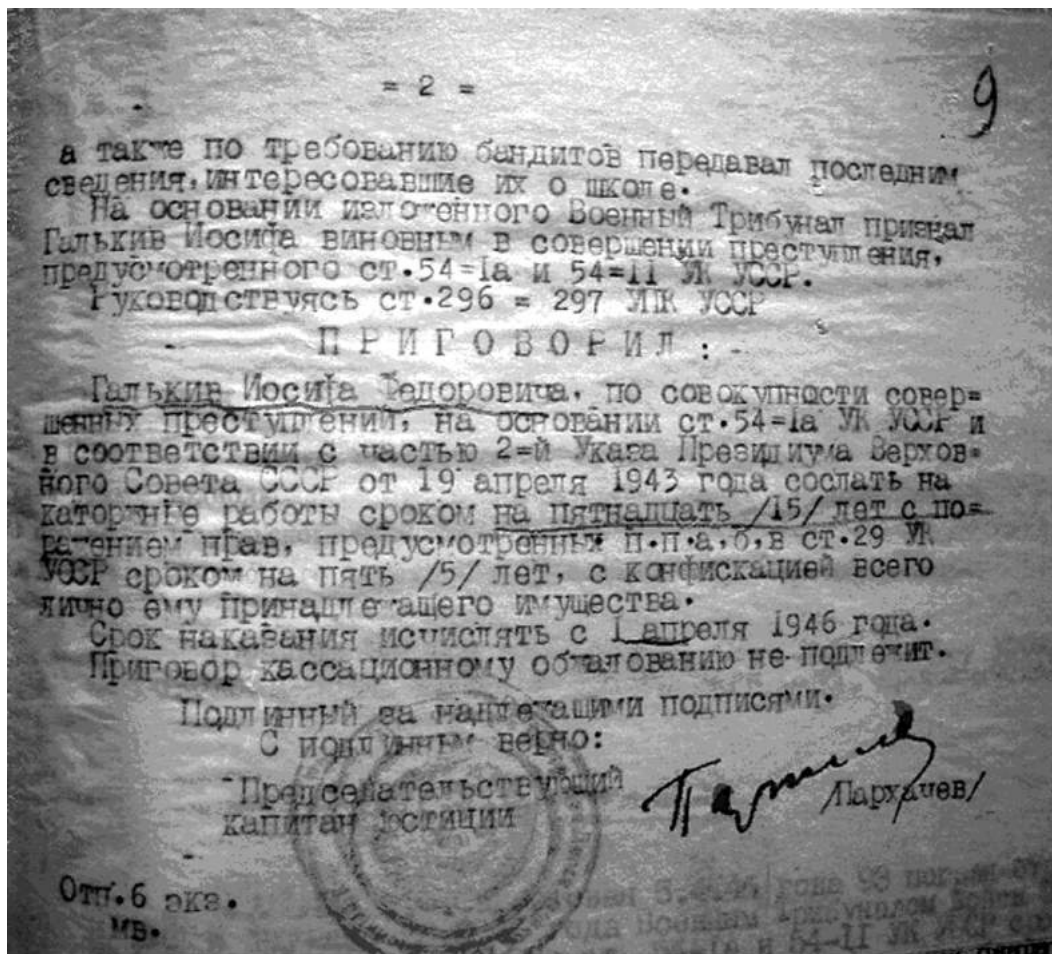 = 2 =
9
а также по требованию бандитов передавал последним
сведения, интересовавшие их о школе.
На основании изложенного Военный Трибунал признал
Галькив Иосифа виновным в совершении преступления,
предусмотренного ст.54=Iа и 54=11 УК УССР.
Руководствуясь ст.296 = 297 УПК УССР
П Р И Г О В О Р И Л :
Галькив Иосифа Федоровича, по совокупности совер=
шенных преступлений, на основании ст.54=Iа УК УССР и
в соответствии с частью 2=й Указа Президиума Верхов=
ного Совета СССР от 19 апреля 1943 года сослать на
каторжные работы сроком на пятнадцать /15/ лет с по=
ражением прав, предусмотренных п.п.а,б,в ст.29 УК
УССР сроком на пять /5/ лет, с конфискацией всего
лично ему принадлежащего имущества.
Срок наказания исчислять с 1 апреля 1946 года.
Приговор кассационному обжалованию не подлежит.
Подлинный за надлежащими подписями.
С подлинным верно:
Председательствующий
капитан юстиции
/Пархачев/
Отп.6 экз.
МВ.